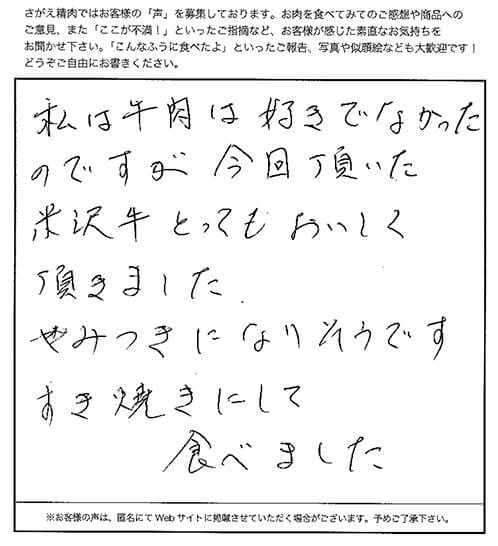 さがえ精肉ではお客様の「声」を募集しております。お肉を食べてみてのご感想や商品への
ご意見、また「ここが不満!」といったご指摘など、お客様が感じた素直なお気持ちを
お聞かせ下さい。「こんなふうに食べたよ」といったご報告、写真や似顔絵なども大歓迎です!
どうぞご自由にお書きください。
私は牛肉は好きでなかった
のですが今回頂いた
米沢牛とってもおいしく
頂きました.
やみつきになりそうです
すき焼きにして
食べました
※お客様の声は、匿名にてWebサイトに掲載させていただく場合がございます。予めご了承下さい。